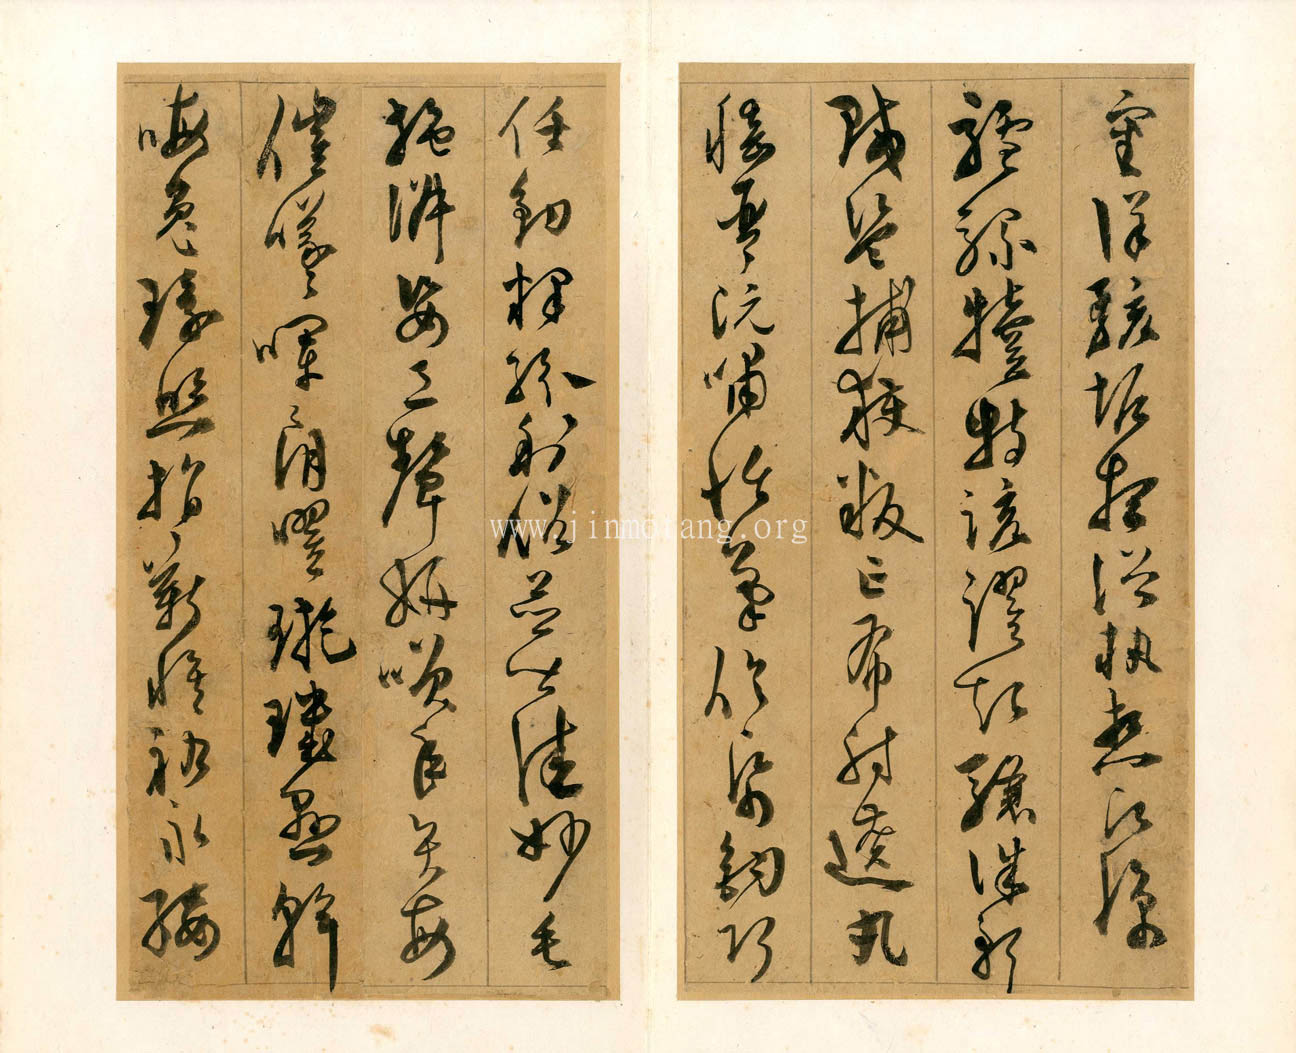 審詳骸垢想浴執熱願涼
驢騾犢特駭躍超驤誅斬
賊盜捕獲叛亡布射遼丸
嵇琴阮嘯恬筆倫紙鈞巧
任釣釋紛利俗並皆佳妙毛
施淑姿工顰妍笑年矢每
催曦暉朗曜璇璣懸斡
晦魄環照指薪修祜永綏
www.jinmotang.org